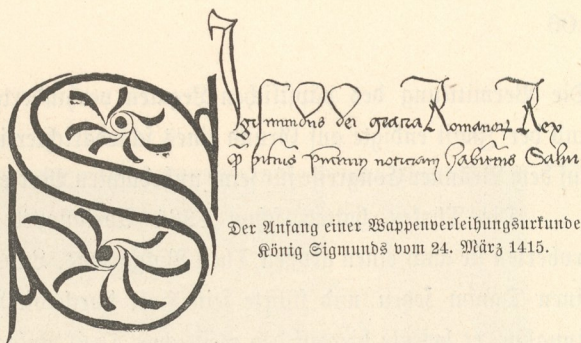 Sigismundus dei gracia Romanorꝝ Rex
noticiam habituris Salu
Der Anfang einer Wappenverleihungsurkunde
König Sigmunds vom 24. März 1415.